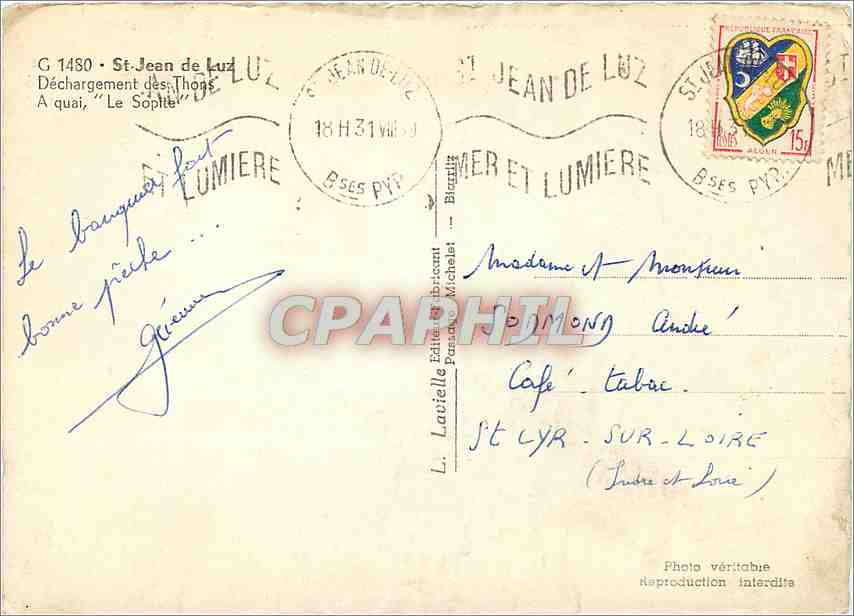 G 1480 • St-Jean de Luz
Déchargement des Thons
A quai, "Le Sopite"
AN DE LUZ
ET LUMIERE
ST JEAN DE LUZ
18 H 31 VIII
BSES PYR.
ST JEAN DE LUZ
MER ET LUMIERE
ST JEA
18 H 3
BSES PYR.
ME
REPUBLIQUE FRANÇAISE
POSTES
15F
ALGER
Le banquier fait
bonne pêche ...
L. Lavielle Editeur-Fabricant
Passage Michelet - Biarritz
CPAPHIL
Madame et Monsieur
André
Café - tabac.
St CYR - SUR - LOIRE
(Indre et Loire)
Photo véritable
Reproduction interdite